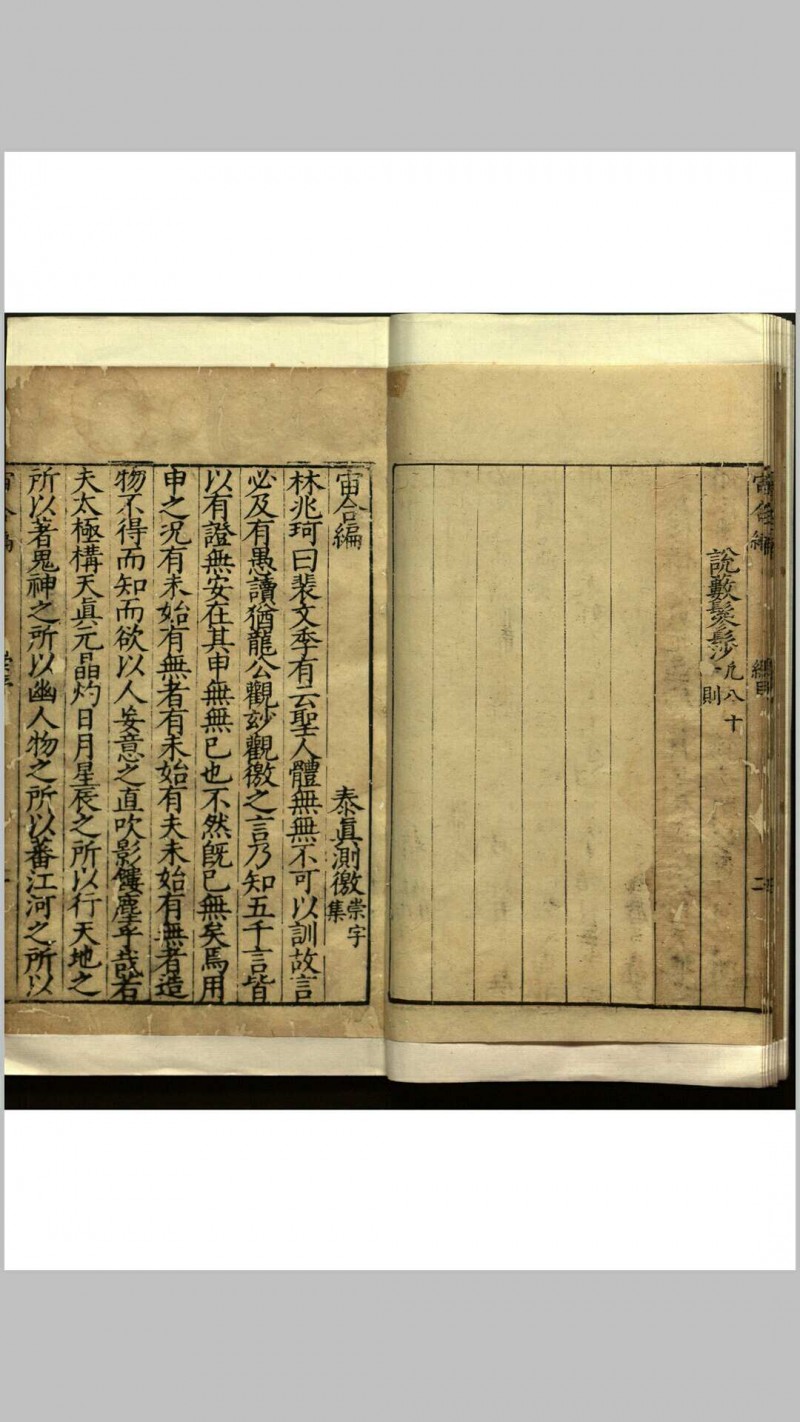 說數髮髟沙凡八十一則
宙合編
總目
二
宙合編 泰眞測徵崇字集
林兆珂曰裴文季有云聖人體無無不可以訓故言
必及有愚讀猶龍公觀玅觀徼之言乃知五千言皆
以有證無安在其申無無已也不然旣已無矣焉用
申之况有未始有無者有未始有夫未始有無者造
物不得而知而欲以人妄意之直吹影鏤塵乎哉若
夫太極構天眞元晶灼日月星辰之所以行天地之
所以著鬼神之所以幽人物之所以蕃江河之所以